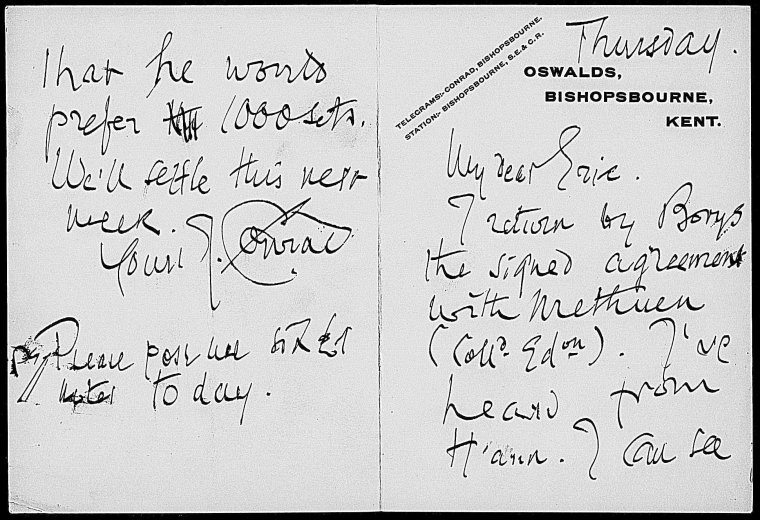 Thursday.
TELEGRAMS:- CONRAD, BISHOPSBOURNE.
STATION:- BISHOPSBOURNE, S.E. & C.R.
OSWALDS,
BISHOPSBOURNE,
KENT.
My dear Eric.
I return by Borys
the signed agreement
with Methuen
(Coll.d Ed.on). I've
heard from
H'ann. I can see
that he would
prefer 1000 sets.
We'll settle this next
week.
Yours J. Conrad
PS Please post me six £1
notes to day.